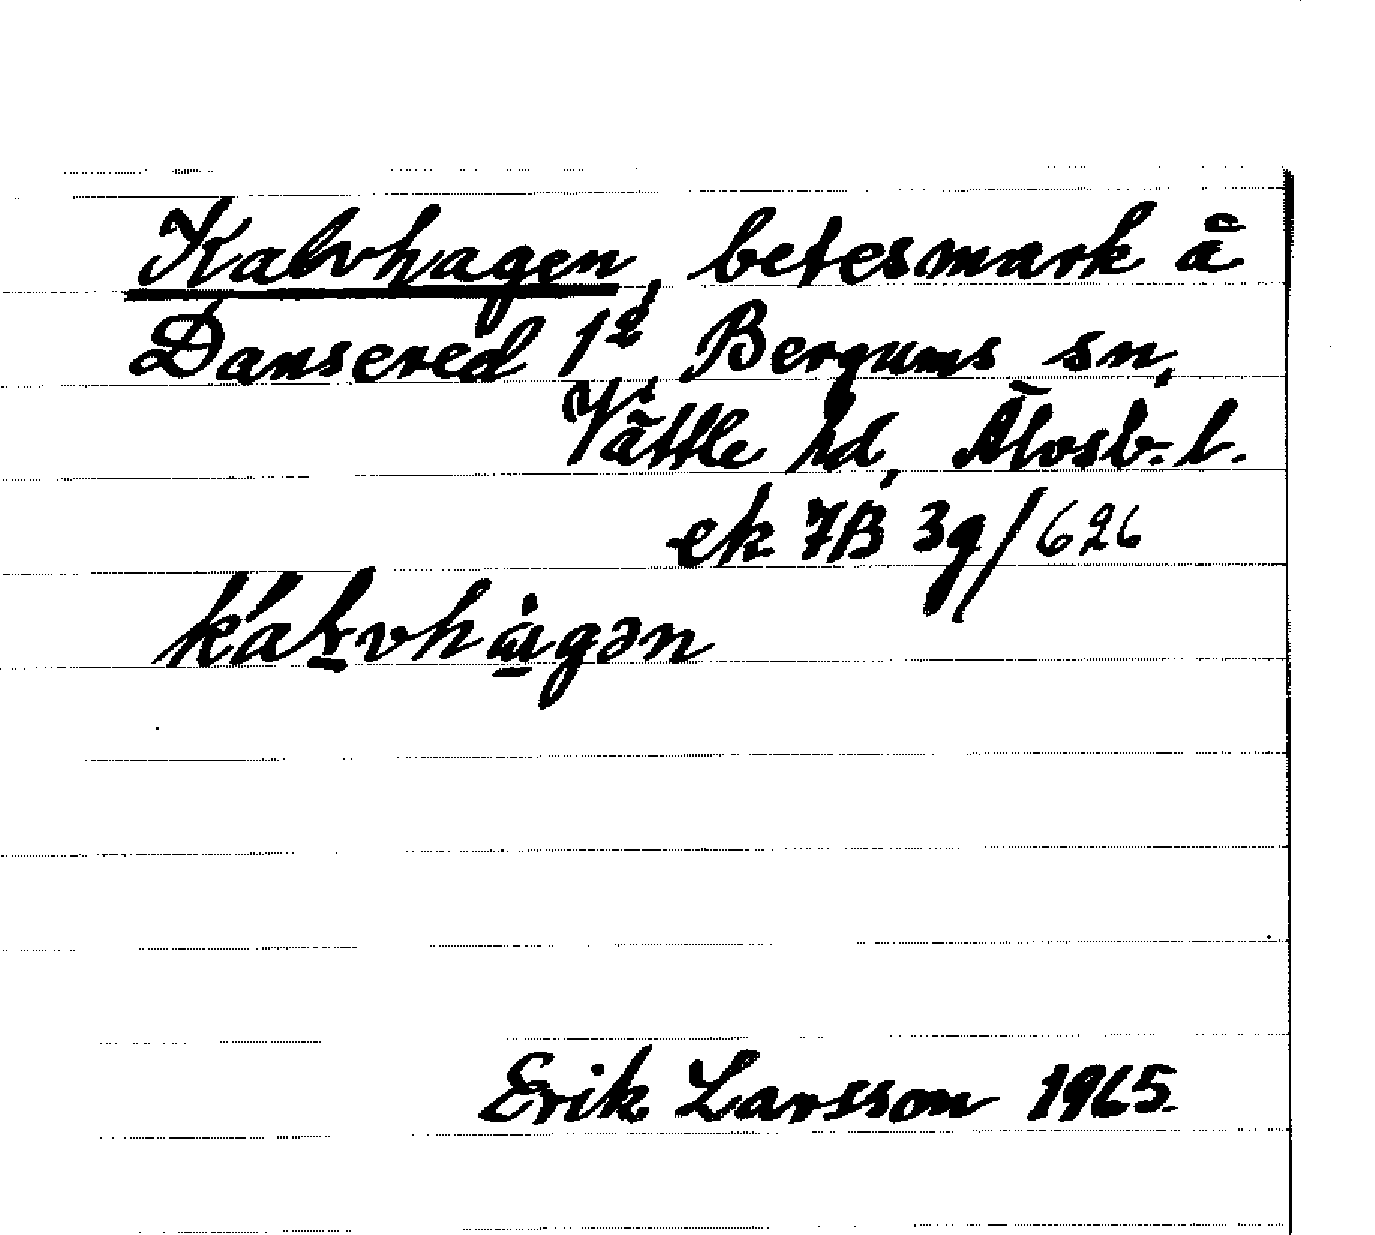 Kalvhagen, betesmark å
Dansered 1² Bergums sn,
Vättle hd, Älvsb. l.
ek 7B 3g/626
Erik Larsson 1965.